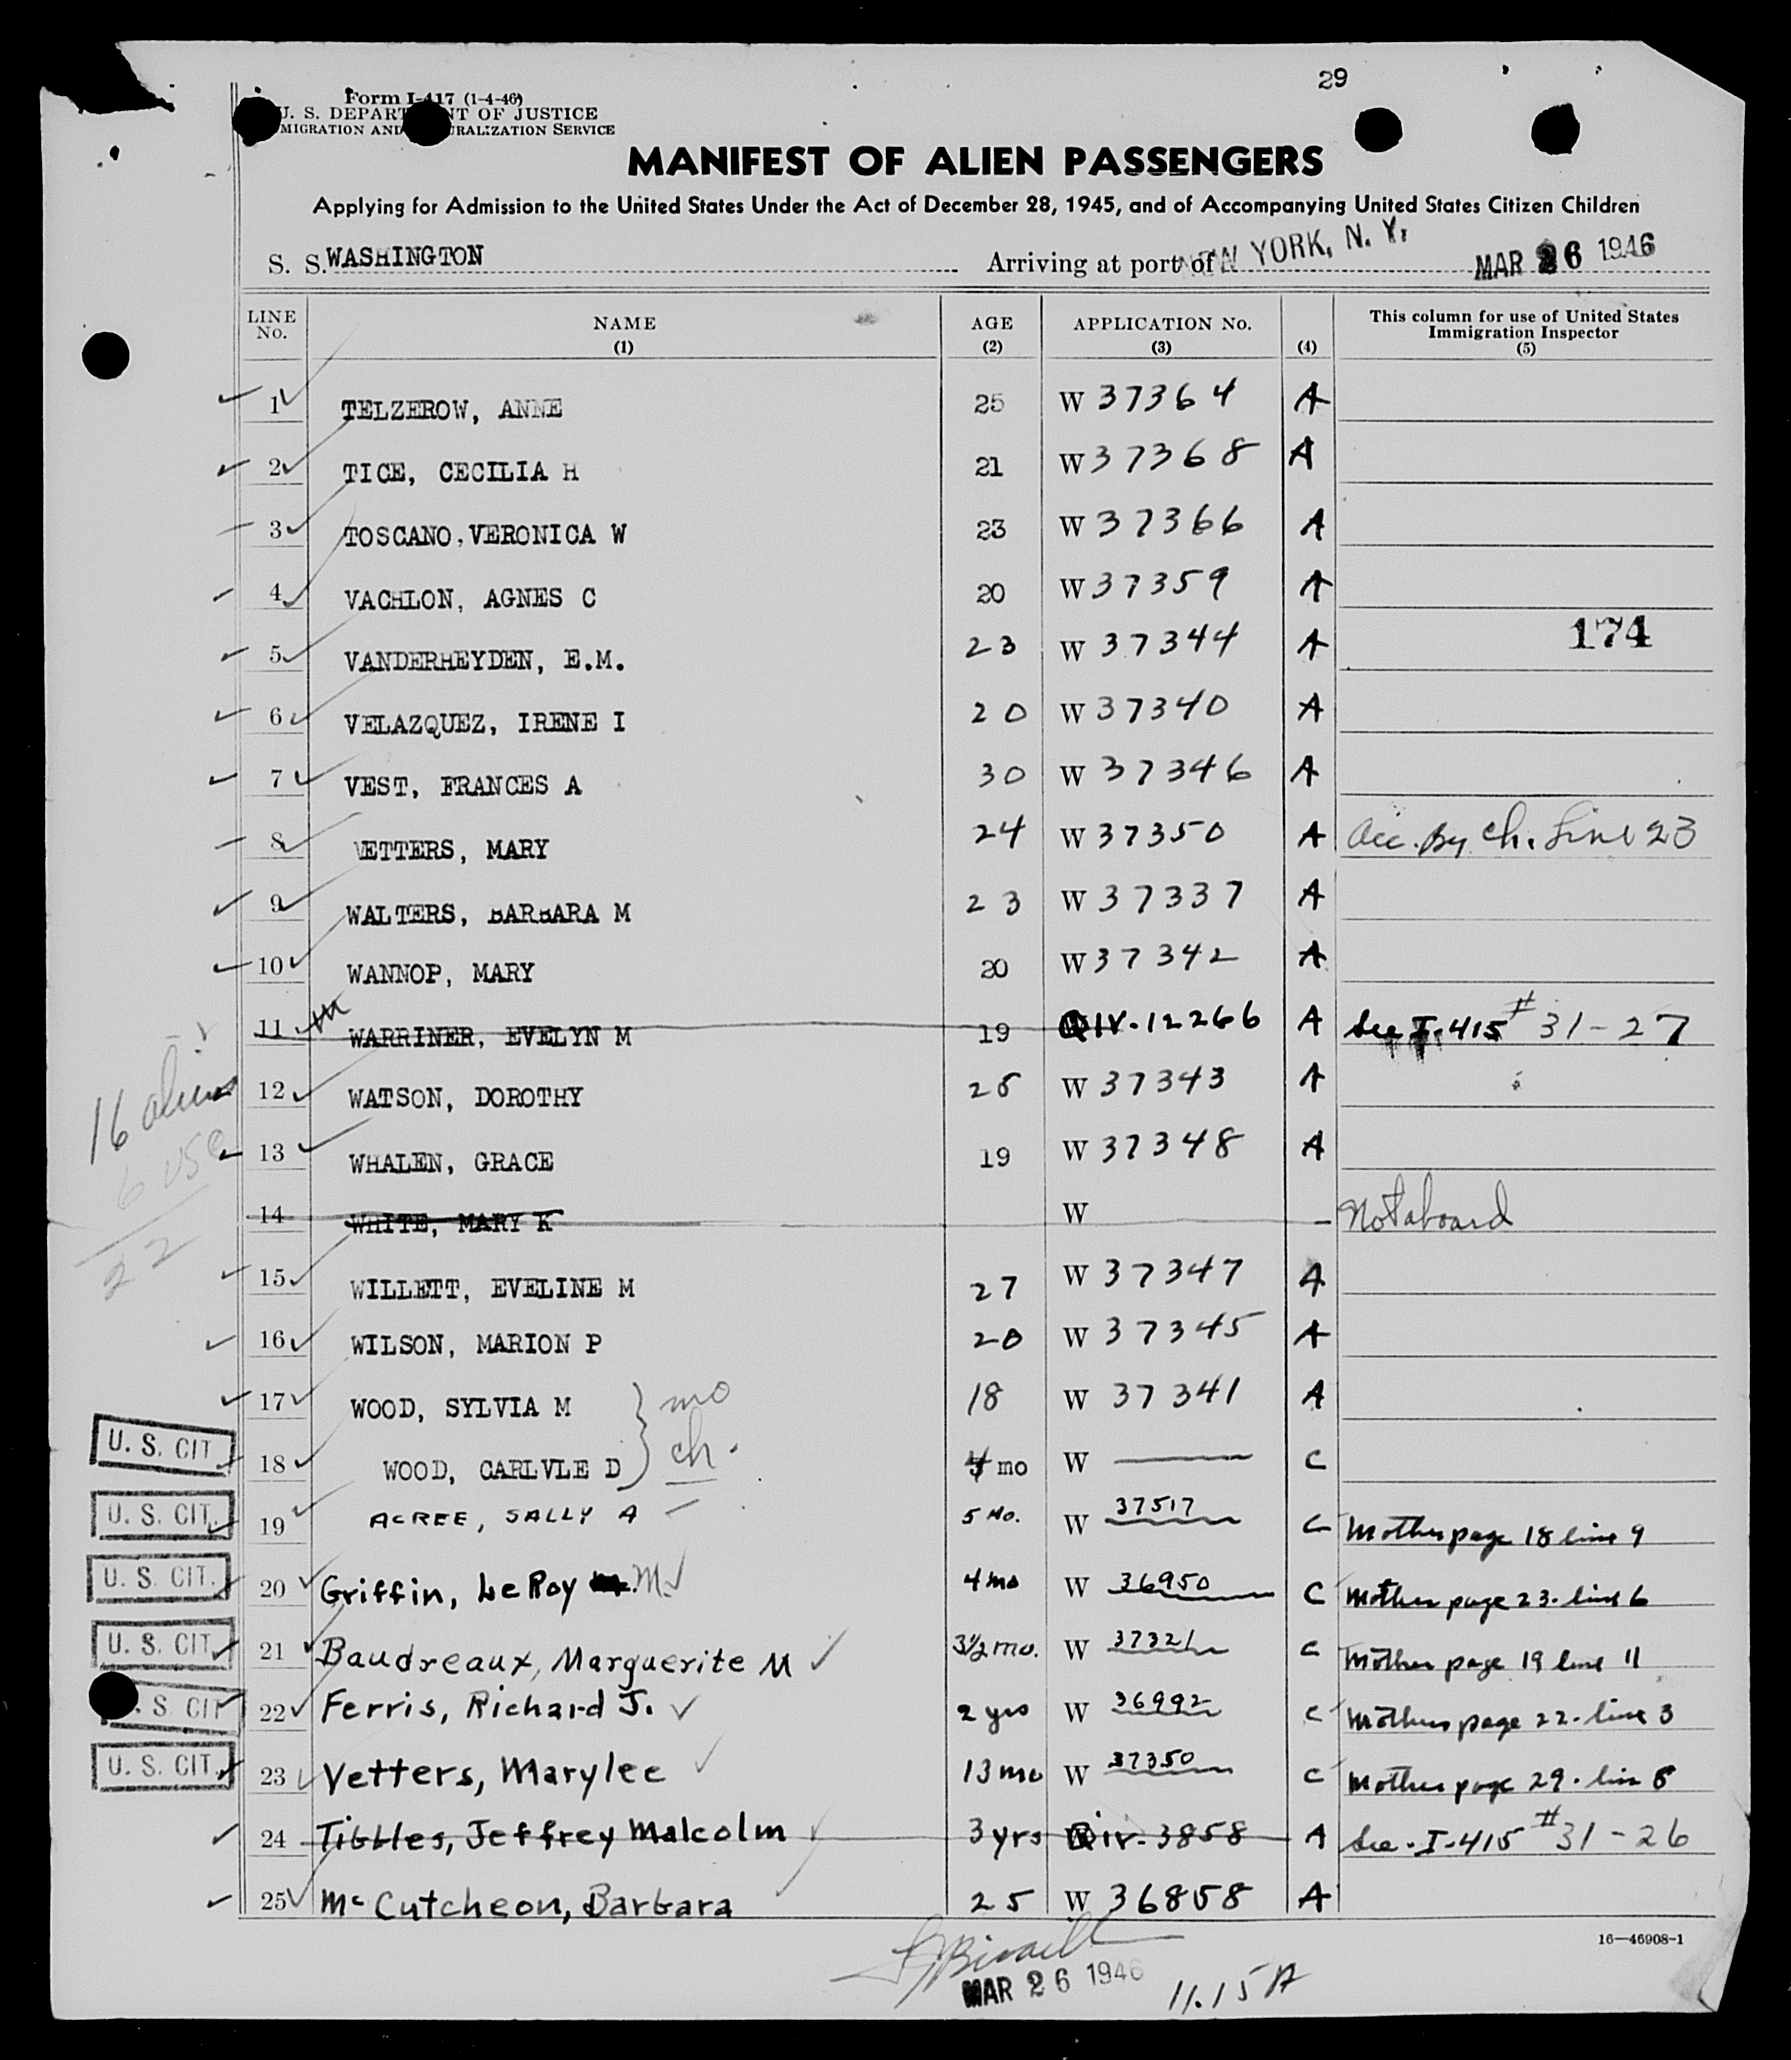 29
Form I-417 (1-4-46)
U. S. DEPARTMENT OF JUSTICE
IMMIGRATION AND NATURALIZATION SERVICE
MANIFEST OF ALIEN PASSENGERS
Applying for Admission to the United States Under the Act of December 28, 1945, and of Accompanying United States Citizen Children
S. S. WASHINGTON Arriving at port of NEW YORK, N. Y. MAR 26 1946
LINE No. NAME (1) AGE (2) APPLICATION No. (3) (4) This column for use of United States Immigration Inspector (5)
1 TELZEROW, ANNE 25 W 37364 A
2 TICE, CECILIA H 21 W 37368 A
3 TOSCANO, VERONICA W 23 W 37366 A
4 VACHLON, AGNES C 20 W 37359 A
174
5 VANDERHEYDEN, E.M. 23 W 37344 A
6 VELAZQUEZ, IRENE I 20 W 37340 A
7 VEST, FRANCES A 30 W 37346 A
8 VETTERS, MARY 24 W 37350 A Acc. By ch. Line 23
9 WALTERS, BARBARA M 23 W 37337 A
10 WANNOP, MARY 20 W 37342 A
11 WARRINER, EVELYN M 19 QIV-12266 A See I-415 # 31-27
12 WATSON, DOROTHY 25 W 37343 A
16 aliens
6 USC
22
13 WHALEN, GRACE 19 W 37348 A
14 WHITE, MARY K W – Not aboard
15 WILLETT, EVELINE M 27 W 37347 A
16 WILSON, MARION P 20 W 37345 A
17 WOOD, SYLVIA M mo 18 W 37341 A
U. S. CIT. 18 WOOD, CARLVLE D ch. 4 mo W — C
U. S. CIT. 19 ACREE, SALLY A 5 Mo. W 37517 C Mother page 18 line 9
U. S. CIT. 20 Griffin, LeRoy M. 4 mo W 36950 C Mother page 23 - line 6
U. S. CIT. 21 Baudreaux, Marguerite M 3½ mo. W 37321 C Mother page 19 line 11
U. S. CIT 22 Ferris, Richard J. 2 yrs W 36992 C Mother page 22 - line 3
U. S. CIT. 23 Vetters, Marylee 13 mo W 37350 C Mother page 29 - line 8
24 Tibbles, Jeffrey Malcolm 3 yrs QIV-3858 A See - I-415 # 31-26
25 McCutcheon, Barbara 25 W 36858 A
16—46908-1
MAR 26 1946 11.15 A